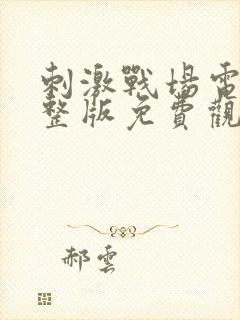 刺激戰場電
整版免費觀
郝雲